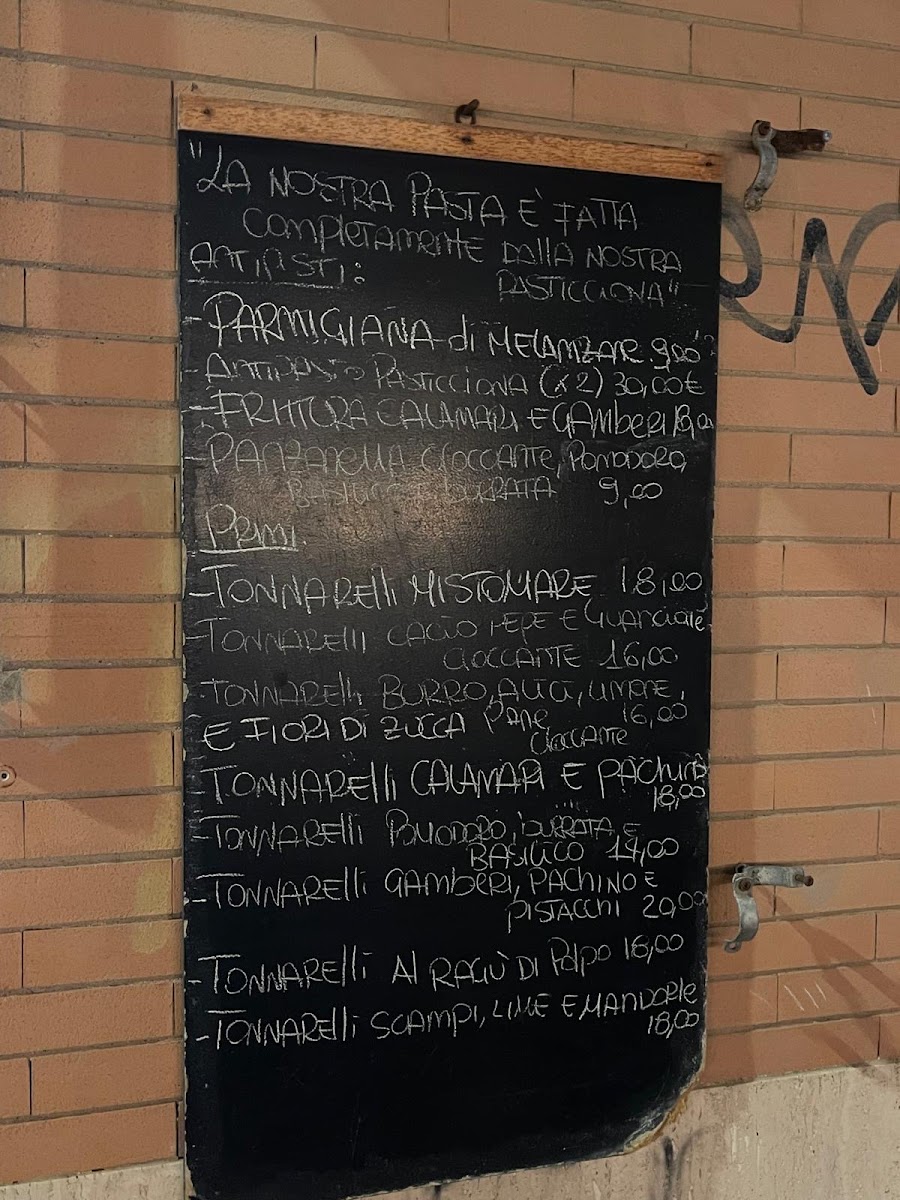 "LA NOSTRA PASTA È FATTA
COMPLETAMENTE DALLA NOSTRA
PASTICCIONA"
ANTIPASTI:
- PARMIGIANA di MELANZANE 9,00
- ANTIPASTO PASTICCIONA (x2) 30,00€
- FRITTURA CALAMARI E GAMBERI 18,00
- PANZANELLA CROCCANTE, POMODORO,
BASILICO E BURRATA 9,00
PRIMI
- TONNARELLI MISTOMARE 18,00
- TONNARELLI CACIO PEPE E GUANCIALE
CROCCANTE 16,00
- TONNARELLI BURRO, ALICI, LIMONE,
E FIORI DI ZUCCA PANE 16,00
CROCCANTE
- TONNARELLI CALAMARI E PACHINO
18,00
- TONNARELLI POMODORO, BURRATA E
BASILICO 14,00
- TONNARELLI GAMBERI, PACHINO E
PISTACCHI 20,00
- TONNARELLI AL RAGÙ DI POLPO 18,00
- TONNARELLI SCAMPI, LIME E MANDORLE
18,00